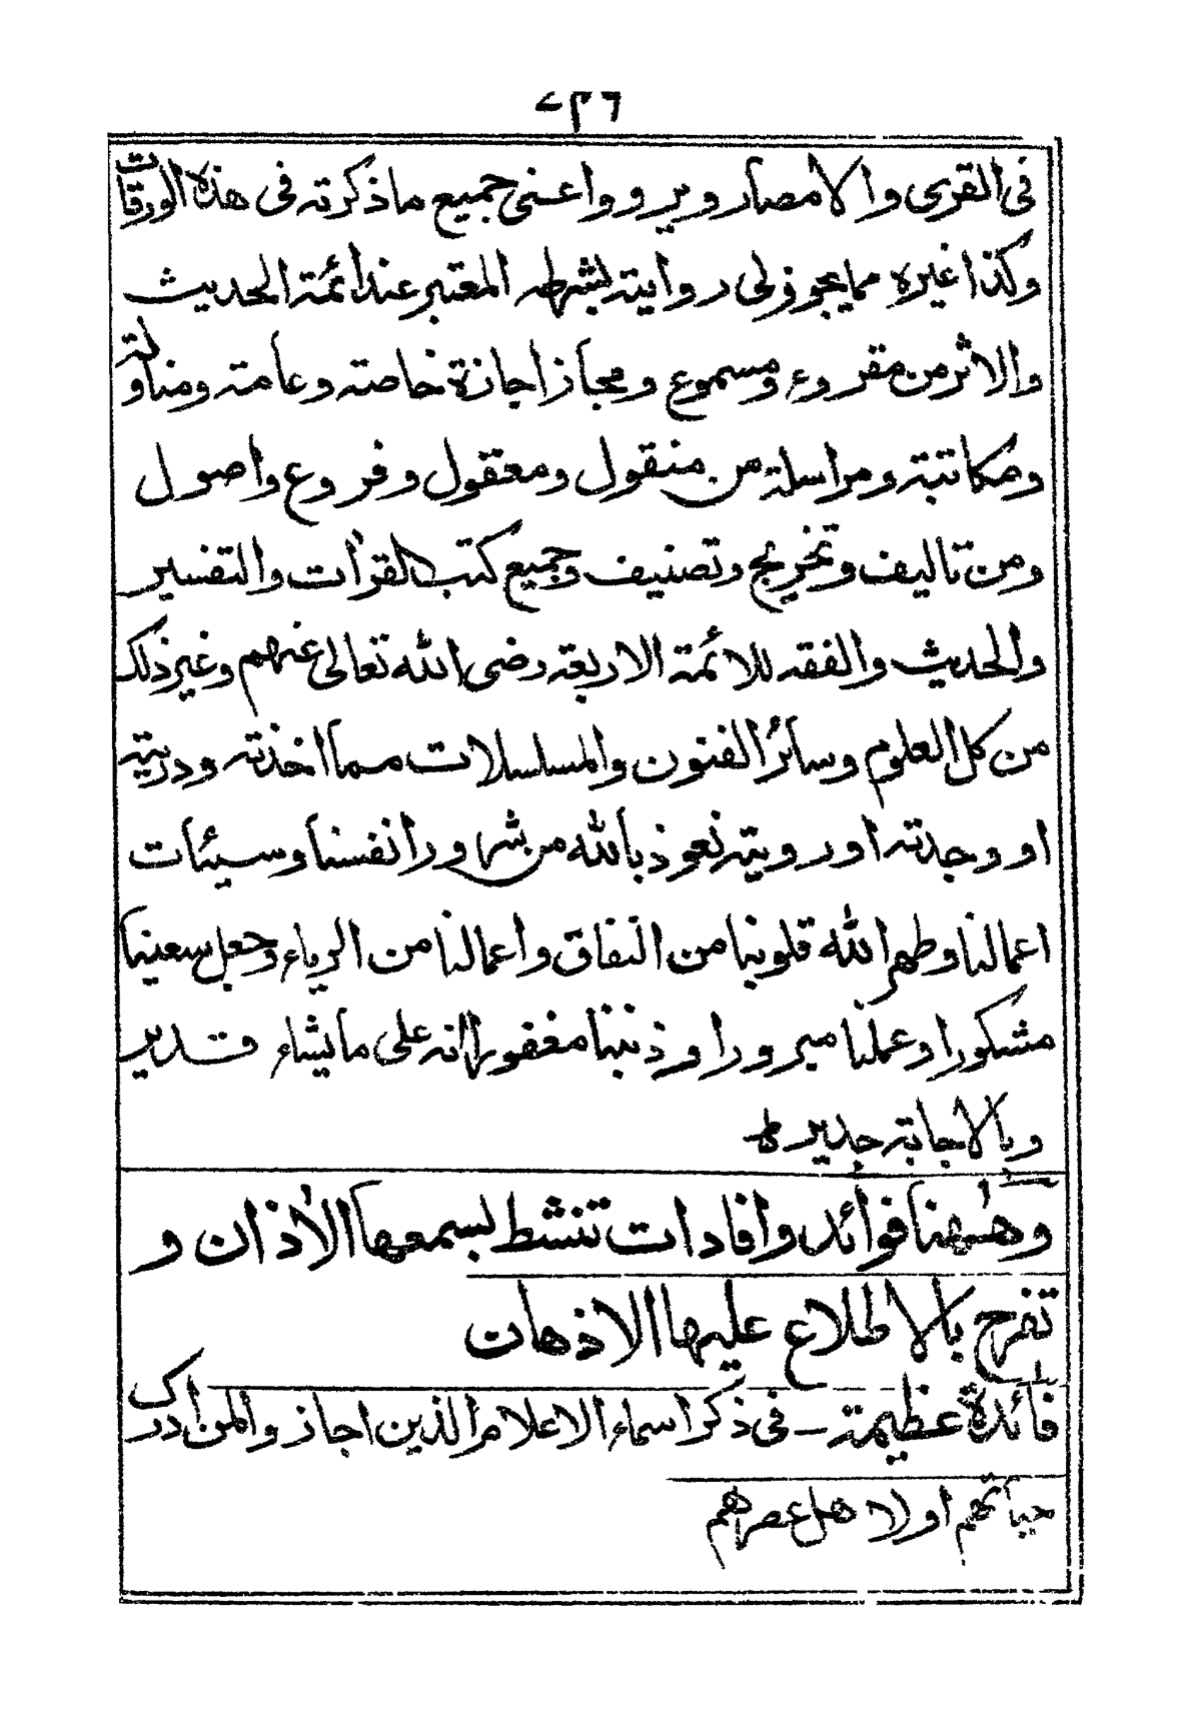 ٤٣٦
فى القرى والامصار ويرووا عنى جميع ما ذكرته فى هذه الورقات
وكذا غيره مما يجوز لى روايته بشرطه المعتبر عند ائمة الحديث
والاثر من مقروء ومسموع ومجاز اجازة خاصته وعامته ومناولته
ومكاتبته ومراسلة من منقول ومعقول وفروع واصول
ومن تاليف وتخريج وتصنيف وجميع كتب القرآت والتفسير
والحديث والفقه للائمة الاربعة رضى الله تعالى عنهم وغير ذلك
من كل العلوم وسائر الفنون والمسلسلات مما اخذته ودريته
او وجدته او رويته نعوذ بالله من شرور انفسنا وسيئات
اعمالنا وطهر الله قلوبنا من النفاق واعمالنا من الرياء وجعل سعينا
مشكورا وعملنا مبرورا وذنبنا مغفورا انه على ما يشاء قدير
وبالاجابة جدير ط
وهٰهنا فوائد وافادات تنشط بسمعها الاذان و
تفرح بالاطلاع عليها الاذهان
فائدة عظيمة ـ فى ذكر اسماء الاعلام الذين اجازوا لمن ادرك
حياتهم اولاهل عصرهم